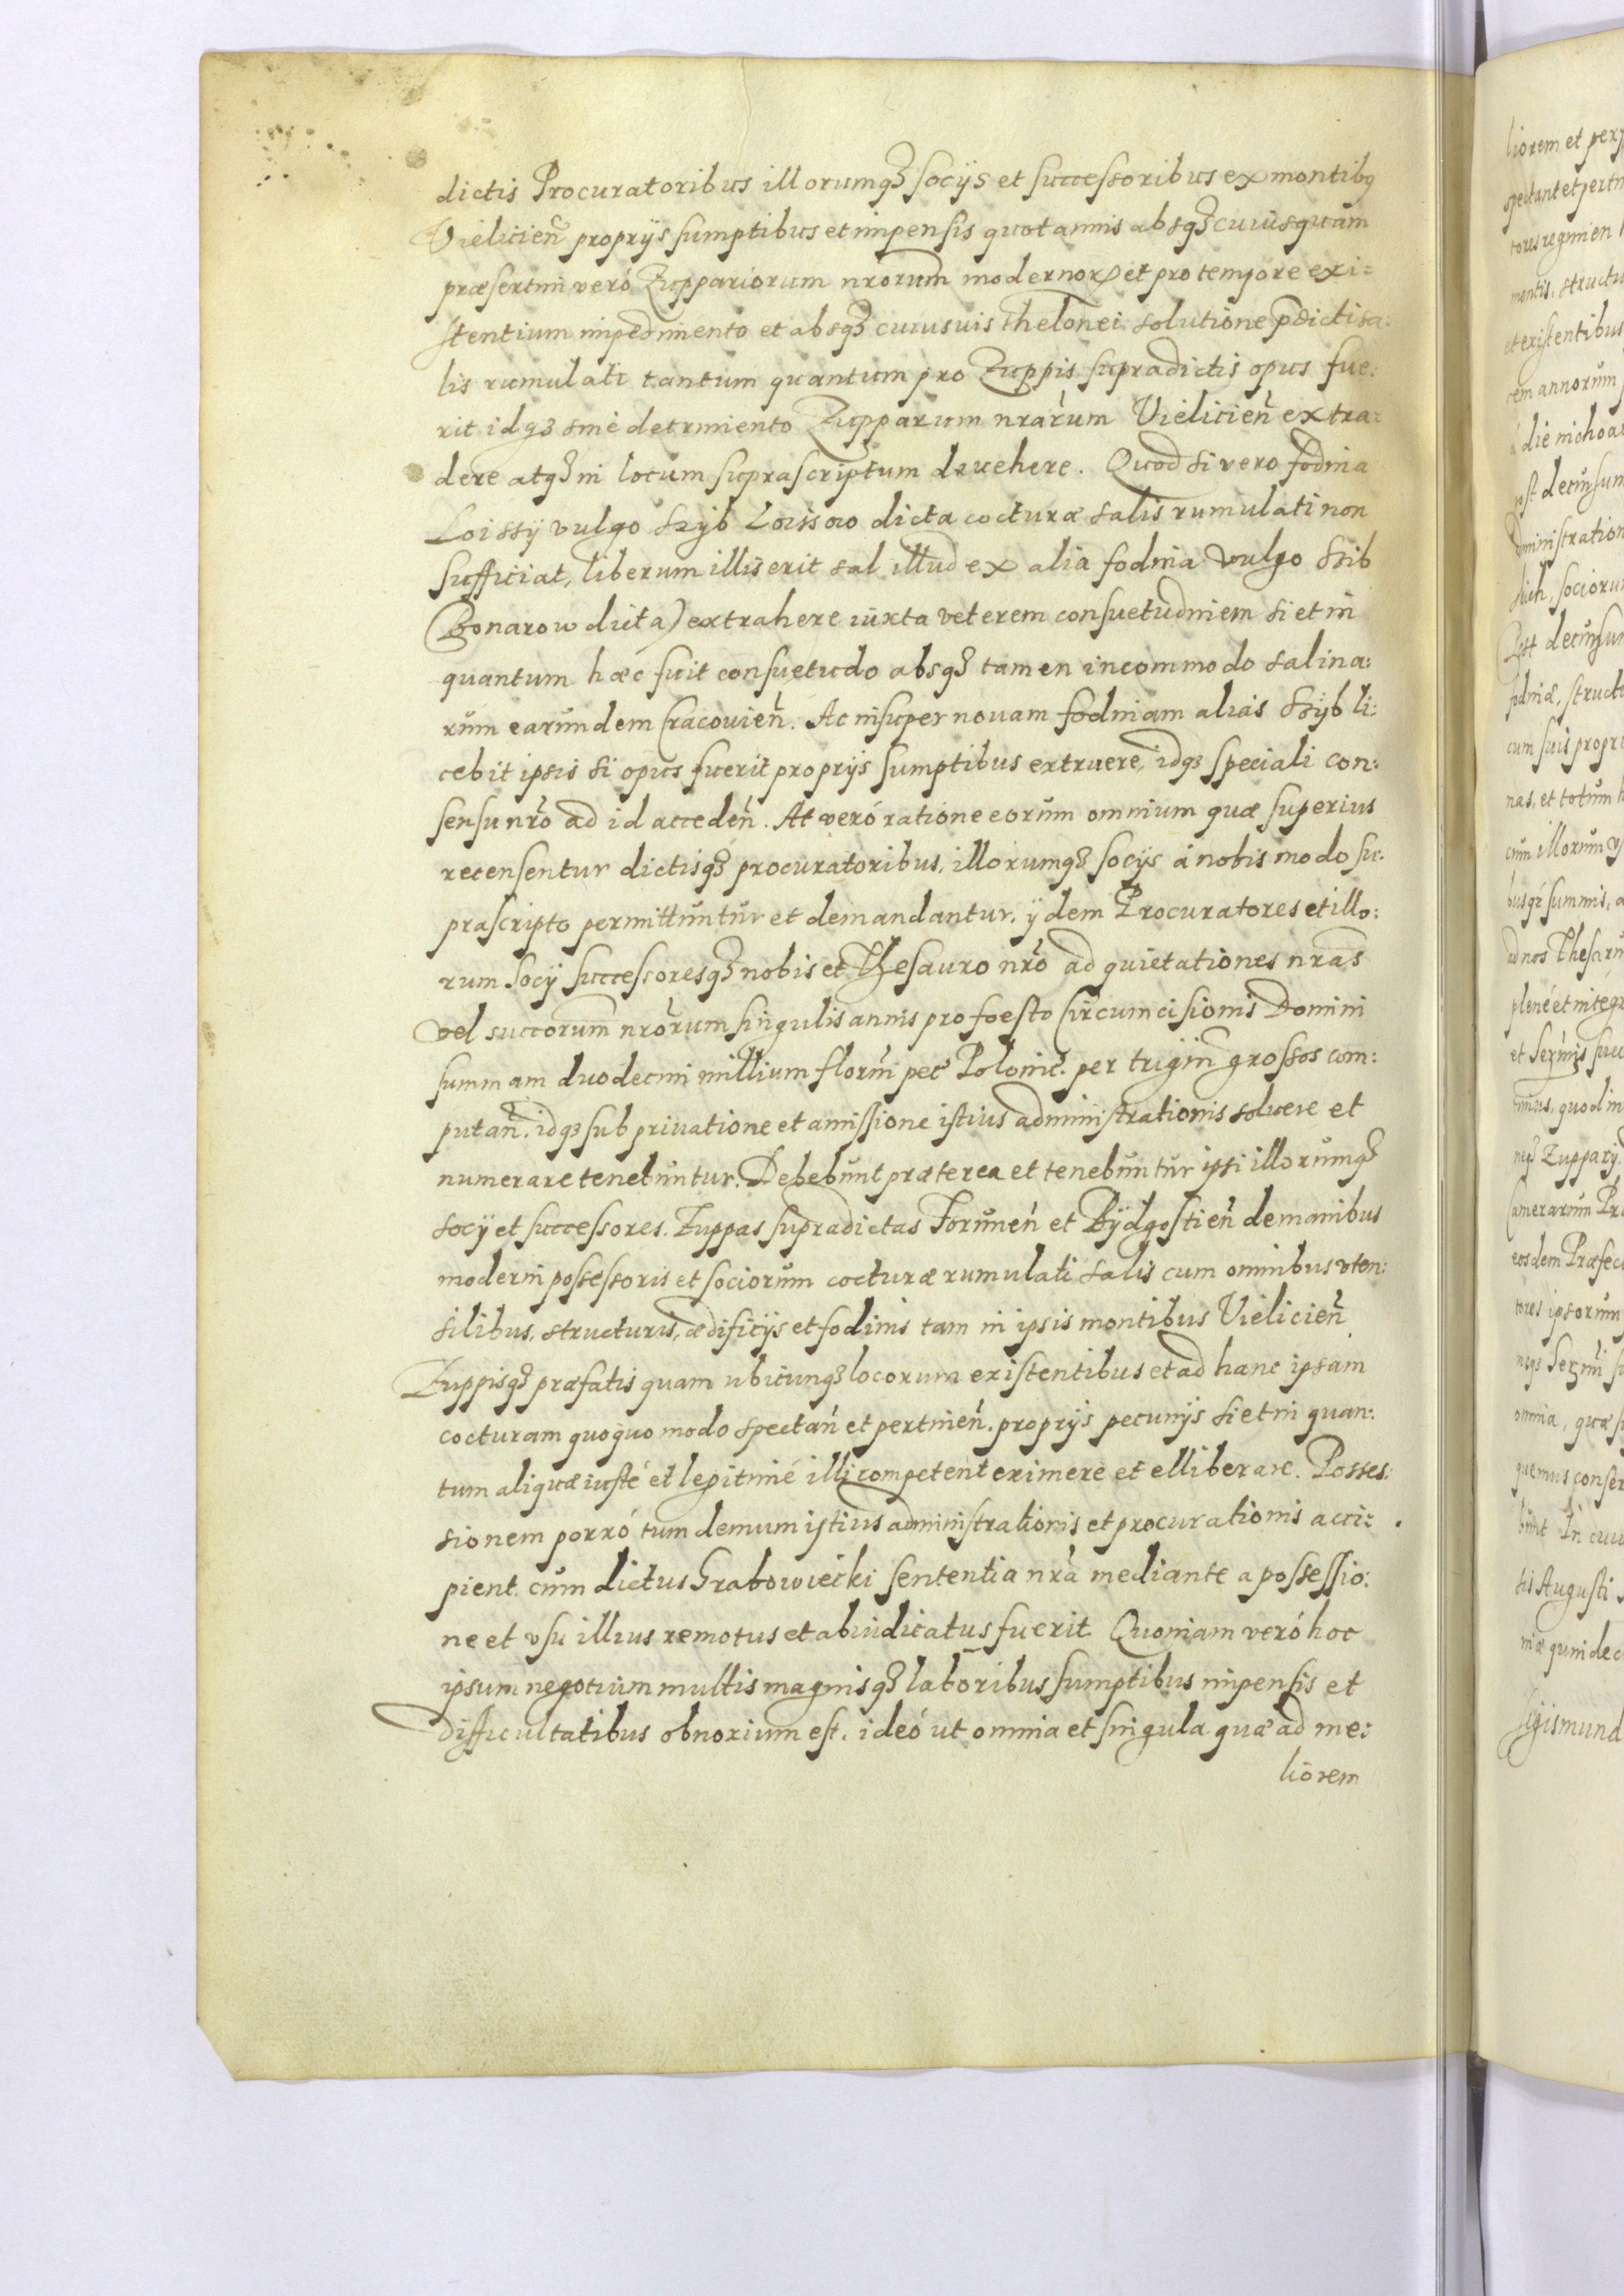 dictis Procuratoribus illorumq₃ socijs et successoribus ex montibq
Vielicień proprijs sumptibus et impensis quotannis absq₃ cuiusquam
præsertim veró Zuppariorum nrorum modernorꝝ et pro tempore exi=
stentium impedimento et absq₃ cuiusuis thelonei solutione pdicti sa:
lis rumulati tantum quantum pro Zuppis supradictis opus fue:
rit idq₃ sine detrimento Zupparum nrarum Vielicień extra:
dere atq₃ in locum suprascriptum devehere. Quod si vero fodina
Loissij vulgo Szÿb Loissowo dicta cocturæ salis rumulati non
sufficiat, liberum illis erit sal illud ex alia fodina vulgo Szib
Bonarow dicta) extrahere iuxta veterem consuetudinem si et in
quantum hæc fuit consuetudo absq₃ tamen incommodo salina:
rum earundem Cracouień. Ac insuper nouam fodinam alias Szÿb li:
cebit ipsis si opus fuerit proprijs sumptibus extruere, idq₃ speciali con:
sensu nro ad id acceden̄. At veró ratione eorum omnium quæ superius
recensentur dictisq₃ procuratoribus, illorumq₃ socijs á nobis modo su:
prascripto permittuntur et demandantur, ÿdem Procuratores et illo:
rum Socij successoresq₃ nobis et Thesauro nro ad quietationes nras
vel succorum nrorum singulis annis pro foesto Circumcisionis Domini
summam duodecim millium florm̄ pec̄ Polonic̄. per trigin̄ grossos com:
putan̄, idq₃ sub priuatione et amissione istius administrationis soluere et
numerare tenebuntur. Debebunt præterea et tenebuntur ipsi illorumq₃
socÿ et successores. Zuppas supradictas Torunen̄ et Bÿdgostien̄ de manibus
moderni possessoris et sociorum cocturæ rumulati salis cum omnibus vten:
silibus, structuris, ædificijs et fodinis tam in ipsis montibus Vielicień
Zuppisq₃ præfatis quam ubicunq₃ locorum existentibus et ad hanc ipsam
cocturam quoquo modo spectan̄ et pertinen̄. proprijs pecunijs si et in quan:
tum aliquæ iusté et legitimé illi competent eximere et elliberare. Posses:
sionem porró tum demum istius administrationis et procurationis acci:
pient cum dictus Grabowiecki sententia nra mediante a possessio:
ne et vsu illius remotus et abiudicatus fuerit. Quoniam veró hoc
ipsum negotium multis magnisq₃ laboribus sumptibus impensis et
difficultatibus obnoxium est, ideó ut omnia et singula quæ ad me:
liorem